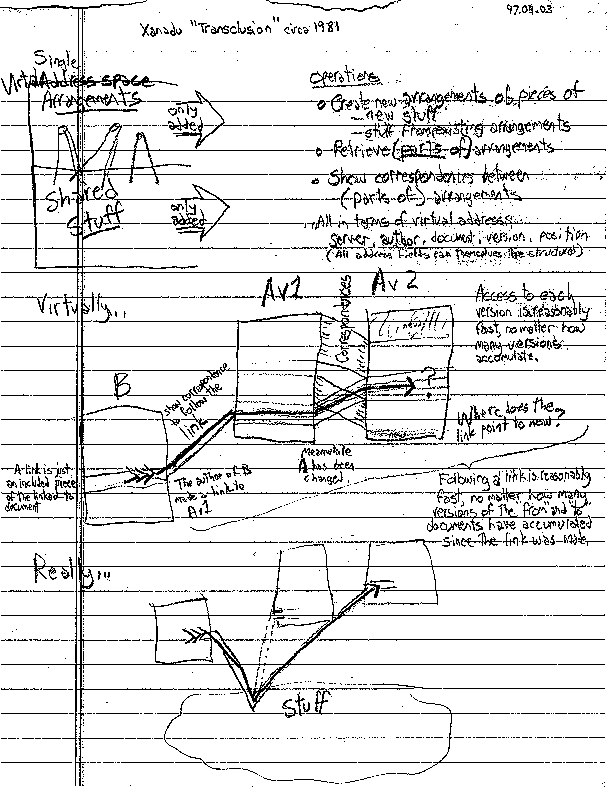 97.09.03
Xanadu "Transclusion" circa 1981
Single
Virtual Address space
Arrangements
only
added
Shared
Stuff
only
added
Operations
• Create new arrangements of pieces of
— new stuff
— stuff from existing arrangements
• Retrieve (parts of) arrangements
• Show correspondences between
(parts of) arrangements
All in terms of virtual address:
server, author, document, version, position
(All address fields can themselves be structured)
Virtually...
Av1
Correspondences
Av2
new
Access to each
version is reasonably
fast, no matter how
many versions
accumulate.
B
show correspondence
to follow the
link
?
Where does the
link point to now?
A link is just
an included piece
of the linked-to
document
The author of B
made a link to
Av1
Meanwhile
A has been
changed
Following a link is reasonably
fast, no matter how many
versions of the from and to
documents have accumulated
since the link was made.
Really...
Stuff